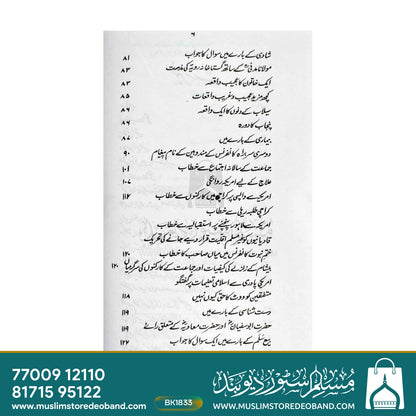 ۶
شادی کے بارے میں سوال کا جواب ۸۱
مولانا مدنی کے ساتھ گستاخانہ رویہ کی مذمت ۸۳
ایک خاتون کا عجیب واقعہ ۸۳
کچھ مزید عجیب و غریب واقعات ۸۵
سیلاب کے دنوں کا ایک واقعہ ۸۶
پنجاب کا دورہ ۸۶
بیماری کے بارے میں ۸۷
دوسری سربراہ کانفرنس کے مندوبین کے نام پیغام ۹۰
جماعت کے سالانہ اجتماع سے خطاب ۱۰۴
علاج کے لیے امریکہ روانگی ۱۰۷
امریکہ سے واپسی پر کراچی میں کارکنوں سے خطاب ۱۱۲
کراچی جلسہ ریلی سے خطاب
امریکہ سے لاہور پہنچنے پر استقبالیہ سے خطاب
قادیانیوں کو غیر مسلم اقلیت قرار دیے جانے کی تحریک
ختم نبوت کانفرنس میں میاں صاحب کا خطاب ۱۲۰
بشام کے زلزلے کی کیفیات اور جماعت کے کارکنوں کی سرگرمیاں ۱۲۰
امریکی پادری سے اسلامی تعلیمات پر گفتگو
متفقین کو ووٹ کا حق کیوں نہیں ۱۱۸
دست شناسی کے بارے میں ۱۱۹
حضرت ابوسفیان اور حضرت معاویہ کے متعلق رائے ۱۱۹
بیع سلم کے بارے میں ایک سوال کا جواب ۱۲۲
77009 12110
81715 95122
BK1833
مسلم اسٹور دیوبند
www.muslimstoredeoband.com
WWW.MUSLIMSTOREDEOBAND.COM